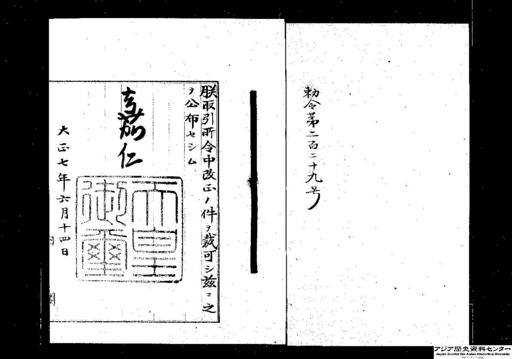 勅令第二百二十九号
朕取引所令中改正ノ件ヲ裁可シ茲ニ之
ヲ公布セシム
嘉仁
天皇
御璽
大正七年六月十四日
内
閣
アジア歴史資料センター
Japan Center for Asian Historical Records